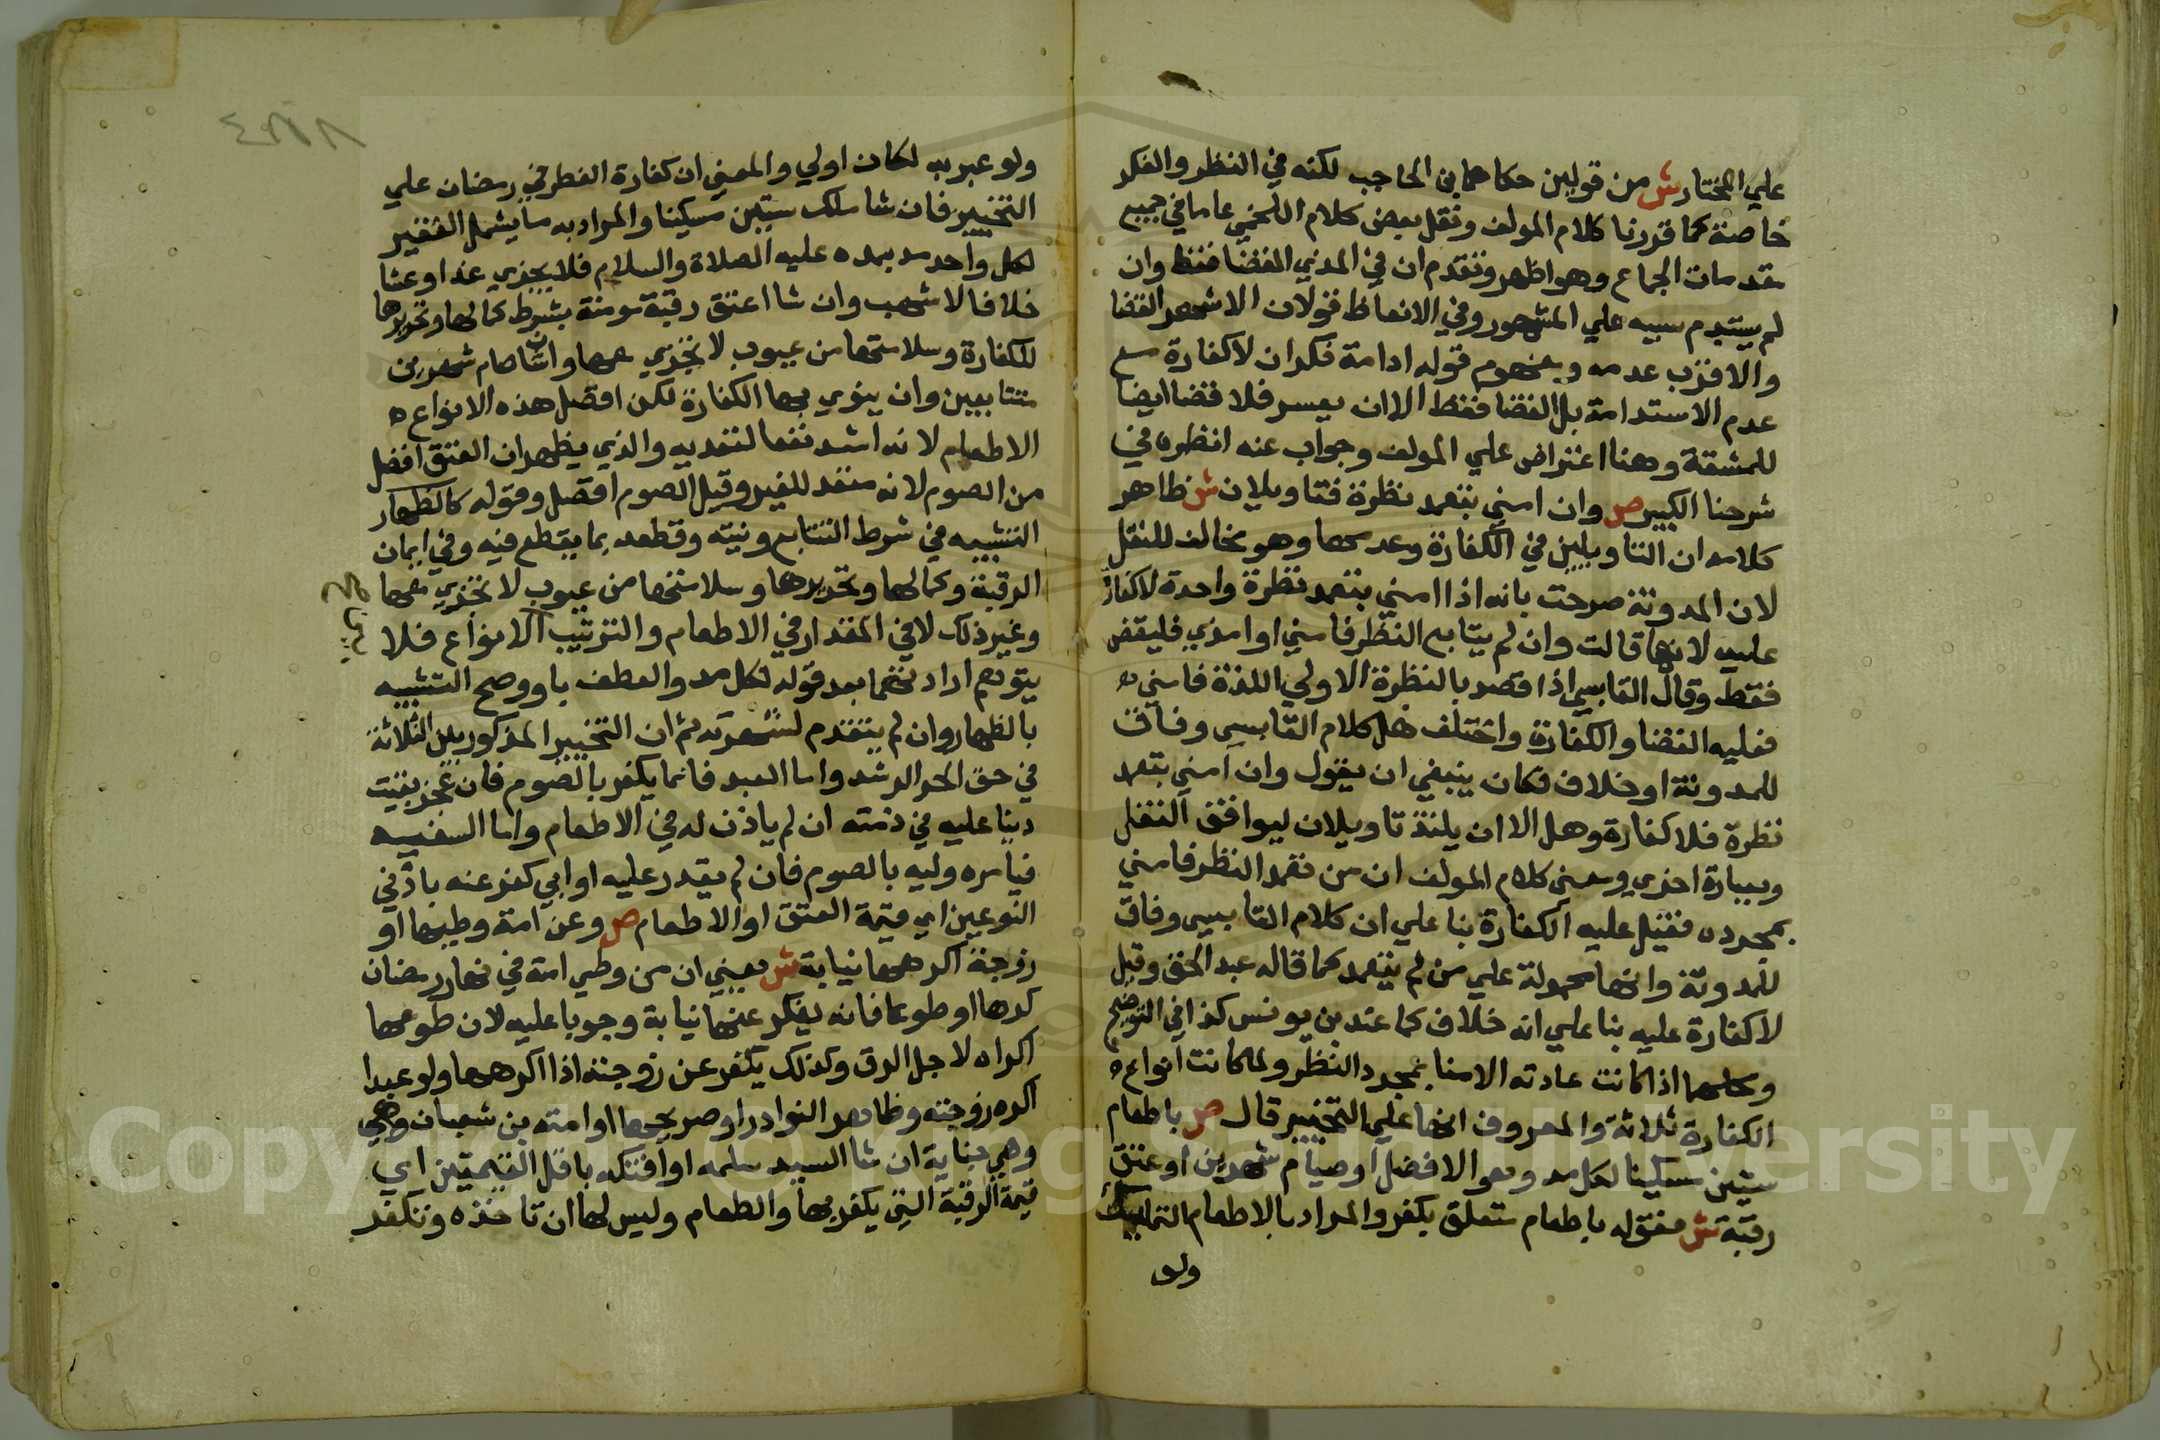 علي المختار ش من قولين حكاهما بن الحاجب لكنه في النظر والفكر
خاصة كما قررنا كلام المولف ونقل بعض كلام اللخمي عاما في جميع
مقدمات الجماع وهو اظهر وتقدم ان في المذي القضا فقط وان
لم يستدم سببه علي المشهور وفي الانعاظ قولان الاشهر القضا
والاقرب عدمه وبمفهوم قوله ادامة فكر ان لا كفارة مع
عدم الاستدامة بل القضا فقط الا ان يعسر فلا قضا ايضا
للمشقة وهنا اعتراض علي المولف وجواب عنه انظره في
شرحنا الكبير ص وان امني بتعمد نظرة فتاويلان ش ظاهر
كلامه ان التاويلين في الكفارة وعدمها وهو مخالف للنقل
لان المدونة صرحت بانه اذا امني بتعمد نظرة واحدة لا كفارة
عليه لانها قالت وان لم يتابع النظر فامني او امذي فليقض
فقط وقال القابسي اذا قصد بالنظرة الاولي اللذة فامني
فعليه القضا والكفارة واختلف هل كلام القابسي وفاق
للمدونة او خلاف فكان ينبغي ان يقول وان امني بتعمد
نظرة فلا كفارة وهل الا ان يلتذ تاويلان ليوافق النقل
وبعبارة اخري ومعني كلام المولف ان من تعمد النظر فامني
بمجرده فقيل عليه الكفارة بنا علي ان كلام القابسي وفاق
للمدونة وانها محمولة علي من لم يتعمد كما قاله عبد الحق وقيل
لا كفارة عليه بنا علي انه خلاف كما عند بن يونس كذا في التوضيح
ومحلهما اذا كانت عادته الامنا بمجرد النظر ولما كانت انواع
الكفارة ثلاثة والمعروف انها علي التخيير قال ص باطعام
ستين مسكينا لكل مد وهو الافضل او صيام شهرين او عتق
رقبة ش فقوله باطعام متعلق بكفر والمراد بالاطعام التمليك
ولو
ولو عبر به لكان اولي والمعني ان كفارة الفطر في رمضان علي
التخيير فان شا ملك ستين مسكينا والمراد به ما يشمل الفقير
لكل واحد مد بمده عليه الصلاة والسلام فلا يجزي غدا وعشا
خلافا لاشهب وان شا اعتق رقبة مومنة بشرط كمالها وتحريرها
للكفارة وسلامتها من عيوب لا تجزي معها وان شا صام شهرين
متتابعين وان ينوي بهما الكفارة لكن افضل هذه الانواع
الاطعام لانه اشد نفعا لتعديه والذي يظهر ان العتق افضل
من الصوم لانه متعد للغير وقيل الصوم افضل وقوله كالظهار
التشبيه في شرط التتابع ونيته وقطعه بما يقطع فيه وفي ايمان
الرقبة وكمالها وتحريرها وسلامتها من عيوب لا تجزي معها
وغير ذلك لا في المقدار في الاطعام والترتيب الانواع فلا
يتوهم ارادتهما بعد قوله لكل مد والعطف باو وصح التشبيه
بالظهار وان لم يتقدم لشهرته ثم ان التخيير المذكور بين الثلاثة
في حق الحر الرشد واما العبد فانما يكفر بالصوم فان عجز بقيت
دينا عليه في ذمته ان لم ياذن له في الاطعام واما السفيه
فيامره وليه بالصوم فان لم يقدر عليه او ابي كفر عنه بادني
النوعين اي قيمة العتق او الاطعام ص وعن امة وطيها او
زوجة اكرهها نيابة ش يعني ان من وطي امته في نهار رمضان
كرها او طوعا فانه يفكر عنها نيابة وجوبا عليه لان طوعها
اكراه لاجل الرق وكذلك يكفر عن زوجته اذا اكرهها ولو عبدا
اكره زوجته وظاهر النوادر او صريحها او امته بن شعبان وهي
وهي جناية ان شا السيد سلمه او افتكه باقل القيمتين اي
قيمة الرقبة التي يكفر بها والطعام وليس لها ان تاخذه وتكفر